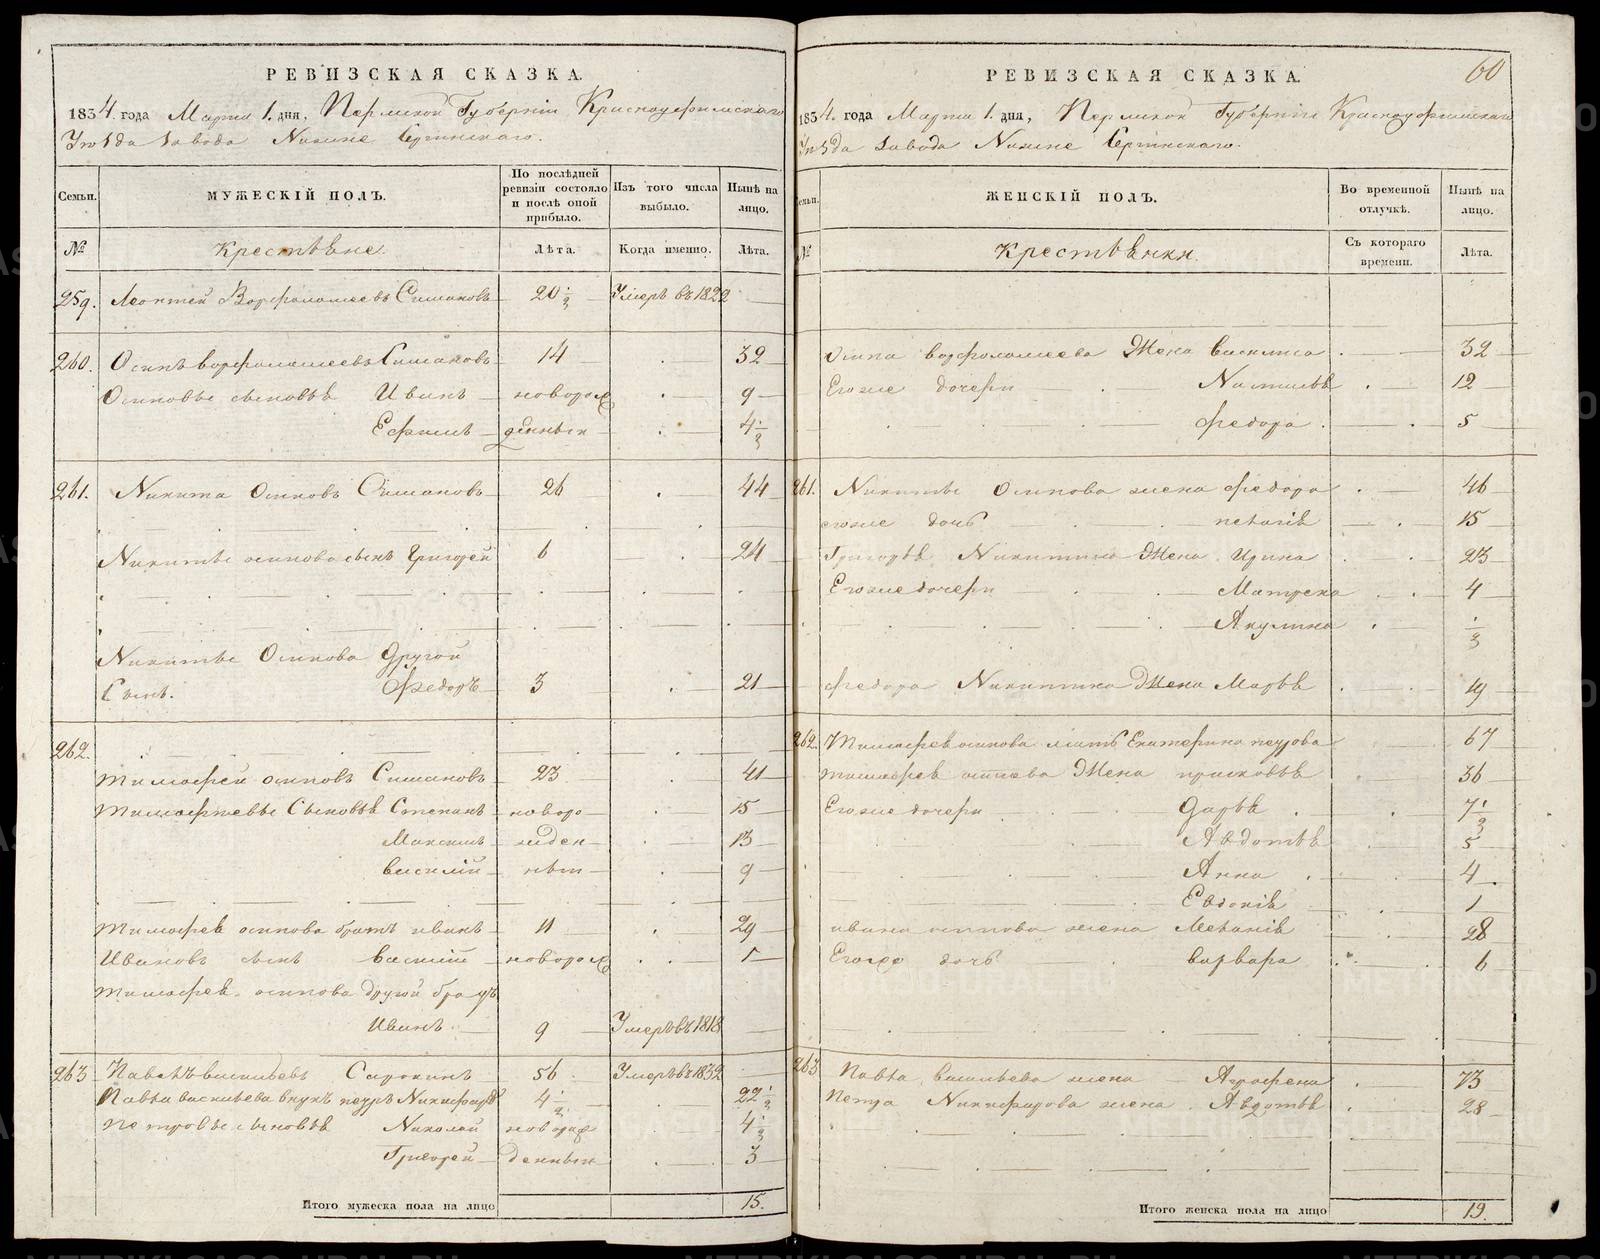 РЕВИЗСКАЯ СКАЗКА.
1834. года Марта 1. дня, Пермской Губерніи Красноуфимскаго
Уѣзда завода Нижне Сергинскаго.
Семьи.
МУЖЕСКІЙ ПОЛЪ.
По послѣдней ревизіи состояло и послѣ оной прибыло.
Изъ того числа выбыло.
Нынѣ на лицо.
№
Крестьѣне.
Лѣта.
Когда именно.
Лѣта.
259. Леонтей Ворфоломеевъ Симановъ 20 1/2 Умеръ въ 1822
260. Осипъ ворфоломеевъ Симановъ 14 32
Осиповы сыновьѣ Иванъ новорож 9
Ефимъ денныи 4 1/2
261. Никита Осиповъ Симановъ 26 44
Никиты осипова сынъ Григорей 6 24
Никиты Осипова другой
Сынъ. Федоръ 3 21
262.
Тимофей осиповъ Симановъ 23 41
Тимофеевы Сыновьѣ Степанъ новоро 15
Максимъ жден 13
василій 9
Тимофея осипова братъ иванъ 11 29
Ивановъ сынъ василій новорож 5
Тимофея осипова другой братъ
Иванъ 9 Умеръ въ 1818
263 Павелъ васильевъ Сорокинъ 56 Умеръ въ 1832
Павла васильева внукъ петръ Никифоровъ 4 1/2 22 1/2
Петровы сыновьѣ Николай новорож 4 1/2
Григорей денныи 3
Итого мужеска пола на лицо 15.
60
РЕВИЗСКАЯ СКАЗКА.
1834. года Марта 1. дня, Пермской Губерніи Красноуфимскаго
Уѣзда завода Нижне Сергинскаго.
Семьи.
ЖЕНСКІЙ ПОЛЪ.
Во временной отлучкѣ.
Нынѣ на лицо.
№
Крестьѣнки.
Съ котораго времени.
Лѣта.
Осипа ворфоломеева Жена василиса 32
Егоже дочери Настасьѣ 12
федора 5
261. Никиты Осипова жена федора 46
егоже дочь 15
Григорьѣ Никитина Жена Ирина 23
Егоже дочери Матрена 4
Акулина 1/2
федора Никитина Жена Марѳа 19
262. Тимофея осипова мать Екатерина петрова 67
тимофея осипова Жена прасковьѣ 36
Егоже дочери Дарьѣ 7 1/2
Авдотьѣ 5
Анна 4
Евдокія 1
ивана осипова жена Меланія 28
Егоже дочь варвара 6
263 Павла васильева жена Аграфена 73
Петра Никифорова жена Авдотьѣ 28
Итого женска пола на лицо 19.